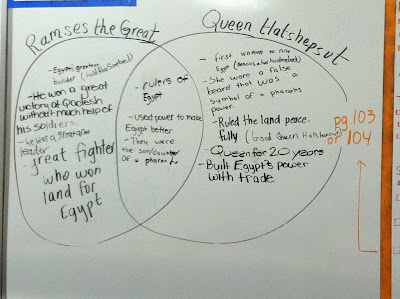 Ramses the Great
Queen Hatshepsut
- Egypt's greatest
builder
- He won a great
victory at Qadesh
without much help of
his soldiers.
- he was a great
leader
- great fighter
who won
land for
Egypt
- rulers of
Egypt
- used power to make
Egypt better
- They were
the son/
of a pharaoh
- first woman to rule
Egypt
- She wore a false
beard that was a
symbol of a pharaohs
power.
- Ruled the land peace-
fully (Good Queen Hatshepsut)
- Queen for 20 years
- Built Egypt's power
with trade
pg. 103
or 104